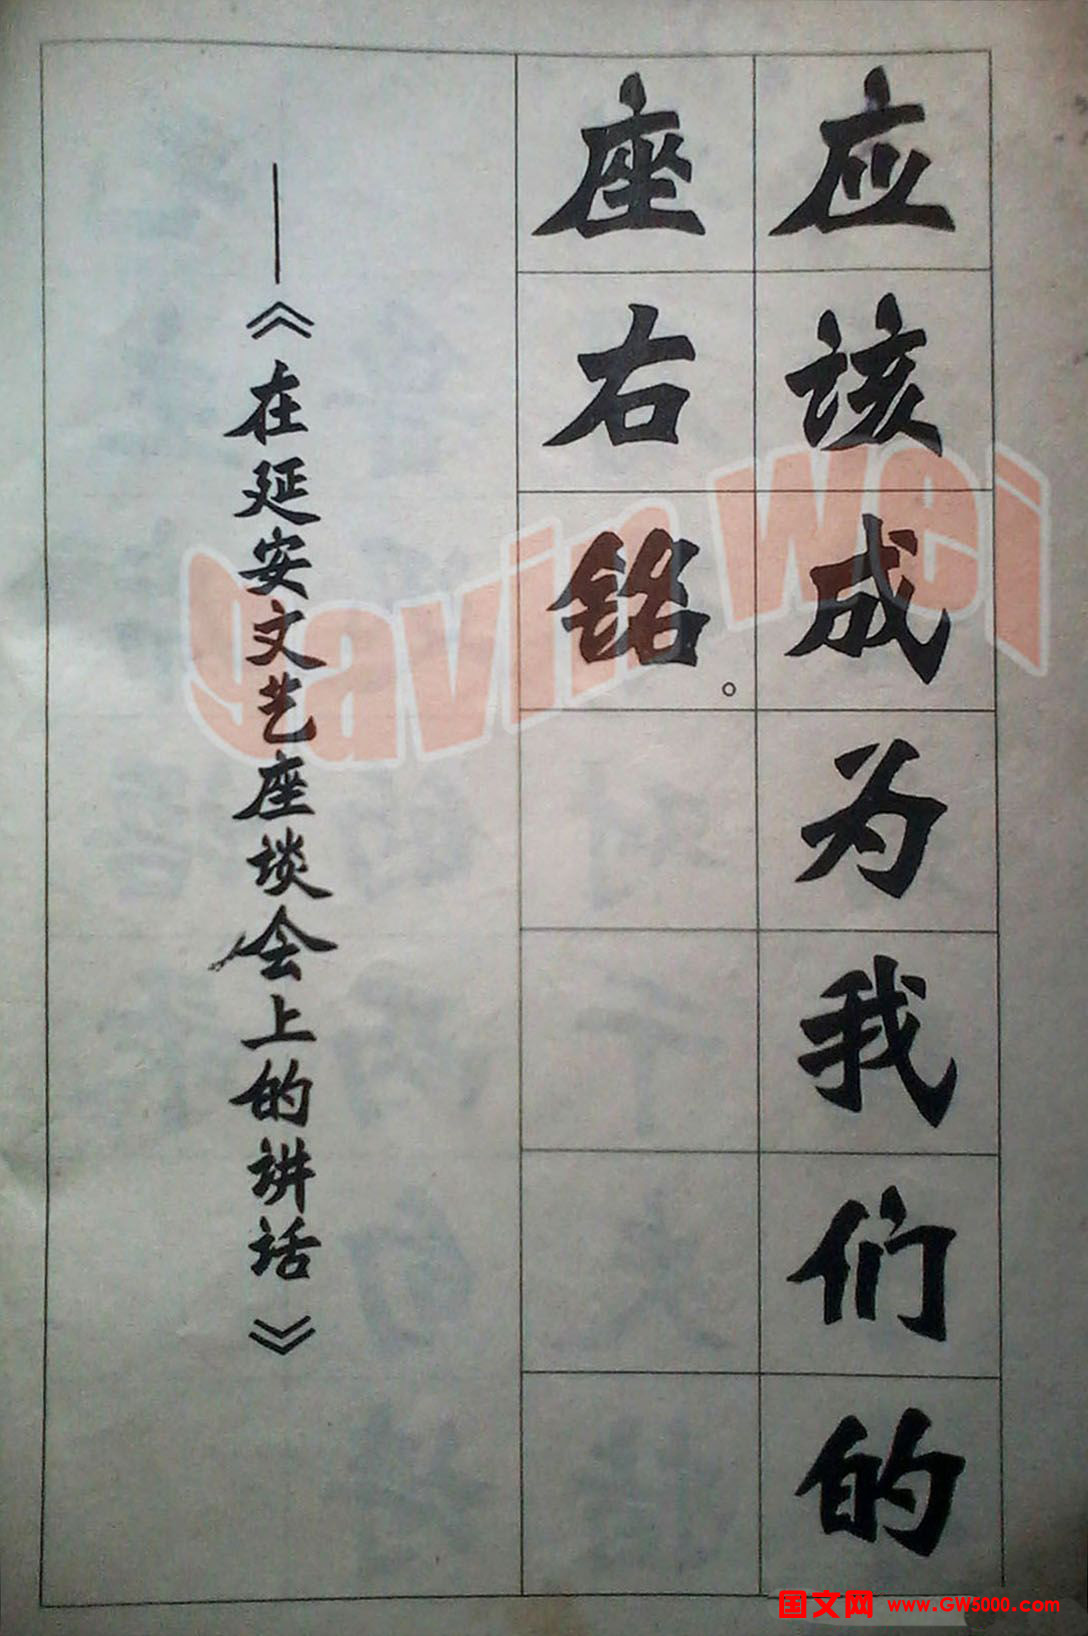 应该成为我们的
座右铭。
——《在延安文艺座谈会上的讲话》
gavin wei
国文网 www.GW5000.com